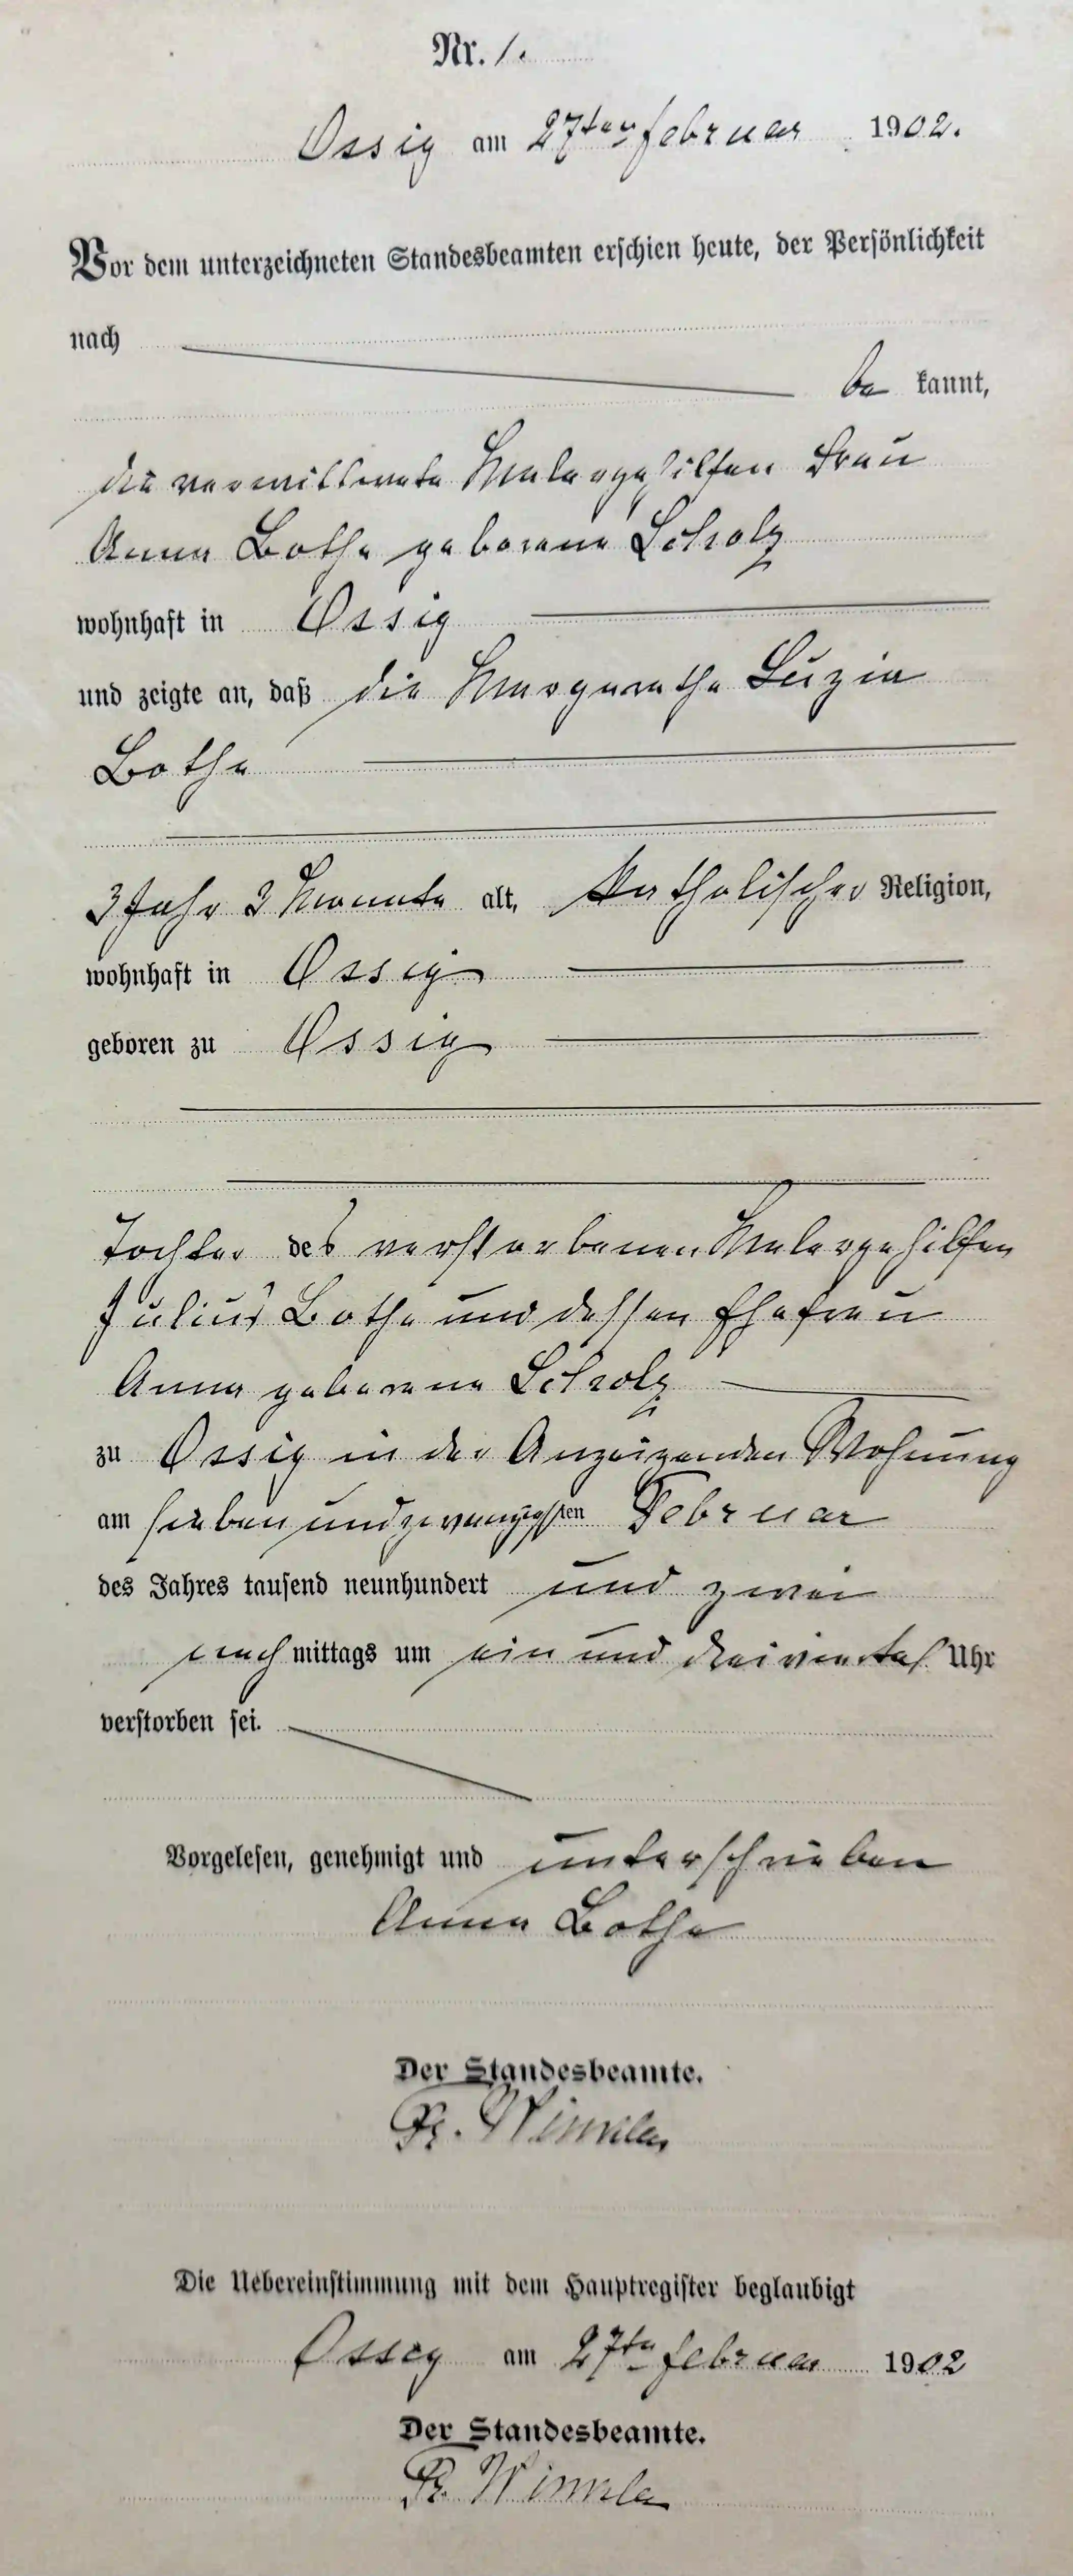 Nr. 1.
Ossig am 27ten Februar 1902.
Vor dem unterzeichneten Standesbeamten erschien heute, der Persönlichkeit
nach
be kannt,
die verwittwete Malergehilfen Frau
Anna Bothe geborene Scholz
wohnhaft in Ossig
und zeigte an, daß die Margarethe Luzia
Bothe
3 Jahr 3 Monate alt, katholischer Religion,
wohnhaft in Ossig
geboren zu Ossig
Tochter des verstorbenen Malergehilfen
Julius Bothe und dessen Ehefrau
Anna geborene Scholz
zu Ossig in der Anzeigenden Wohnung
am sieben und zwanzigsten Februar
des Jahres tausend neunhundert und zwei
nach mittags um ein und dreiviertel Uhr
verstorben sei.
Vorgelesen, genehmigt und unterschrieben
Anna Bothe
Der Standesbeamte.
Die Uebereinstimmung mit dem Hauptregister beglaubigt
Ossig am 27ten Februar 1902
Der Standesbeamte.